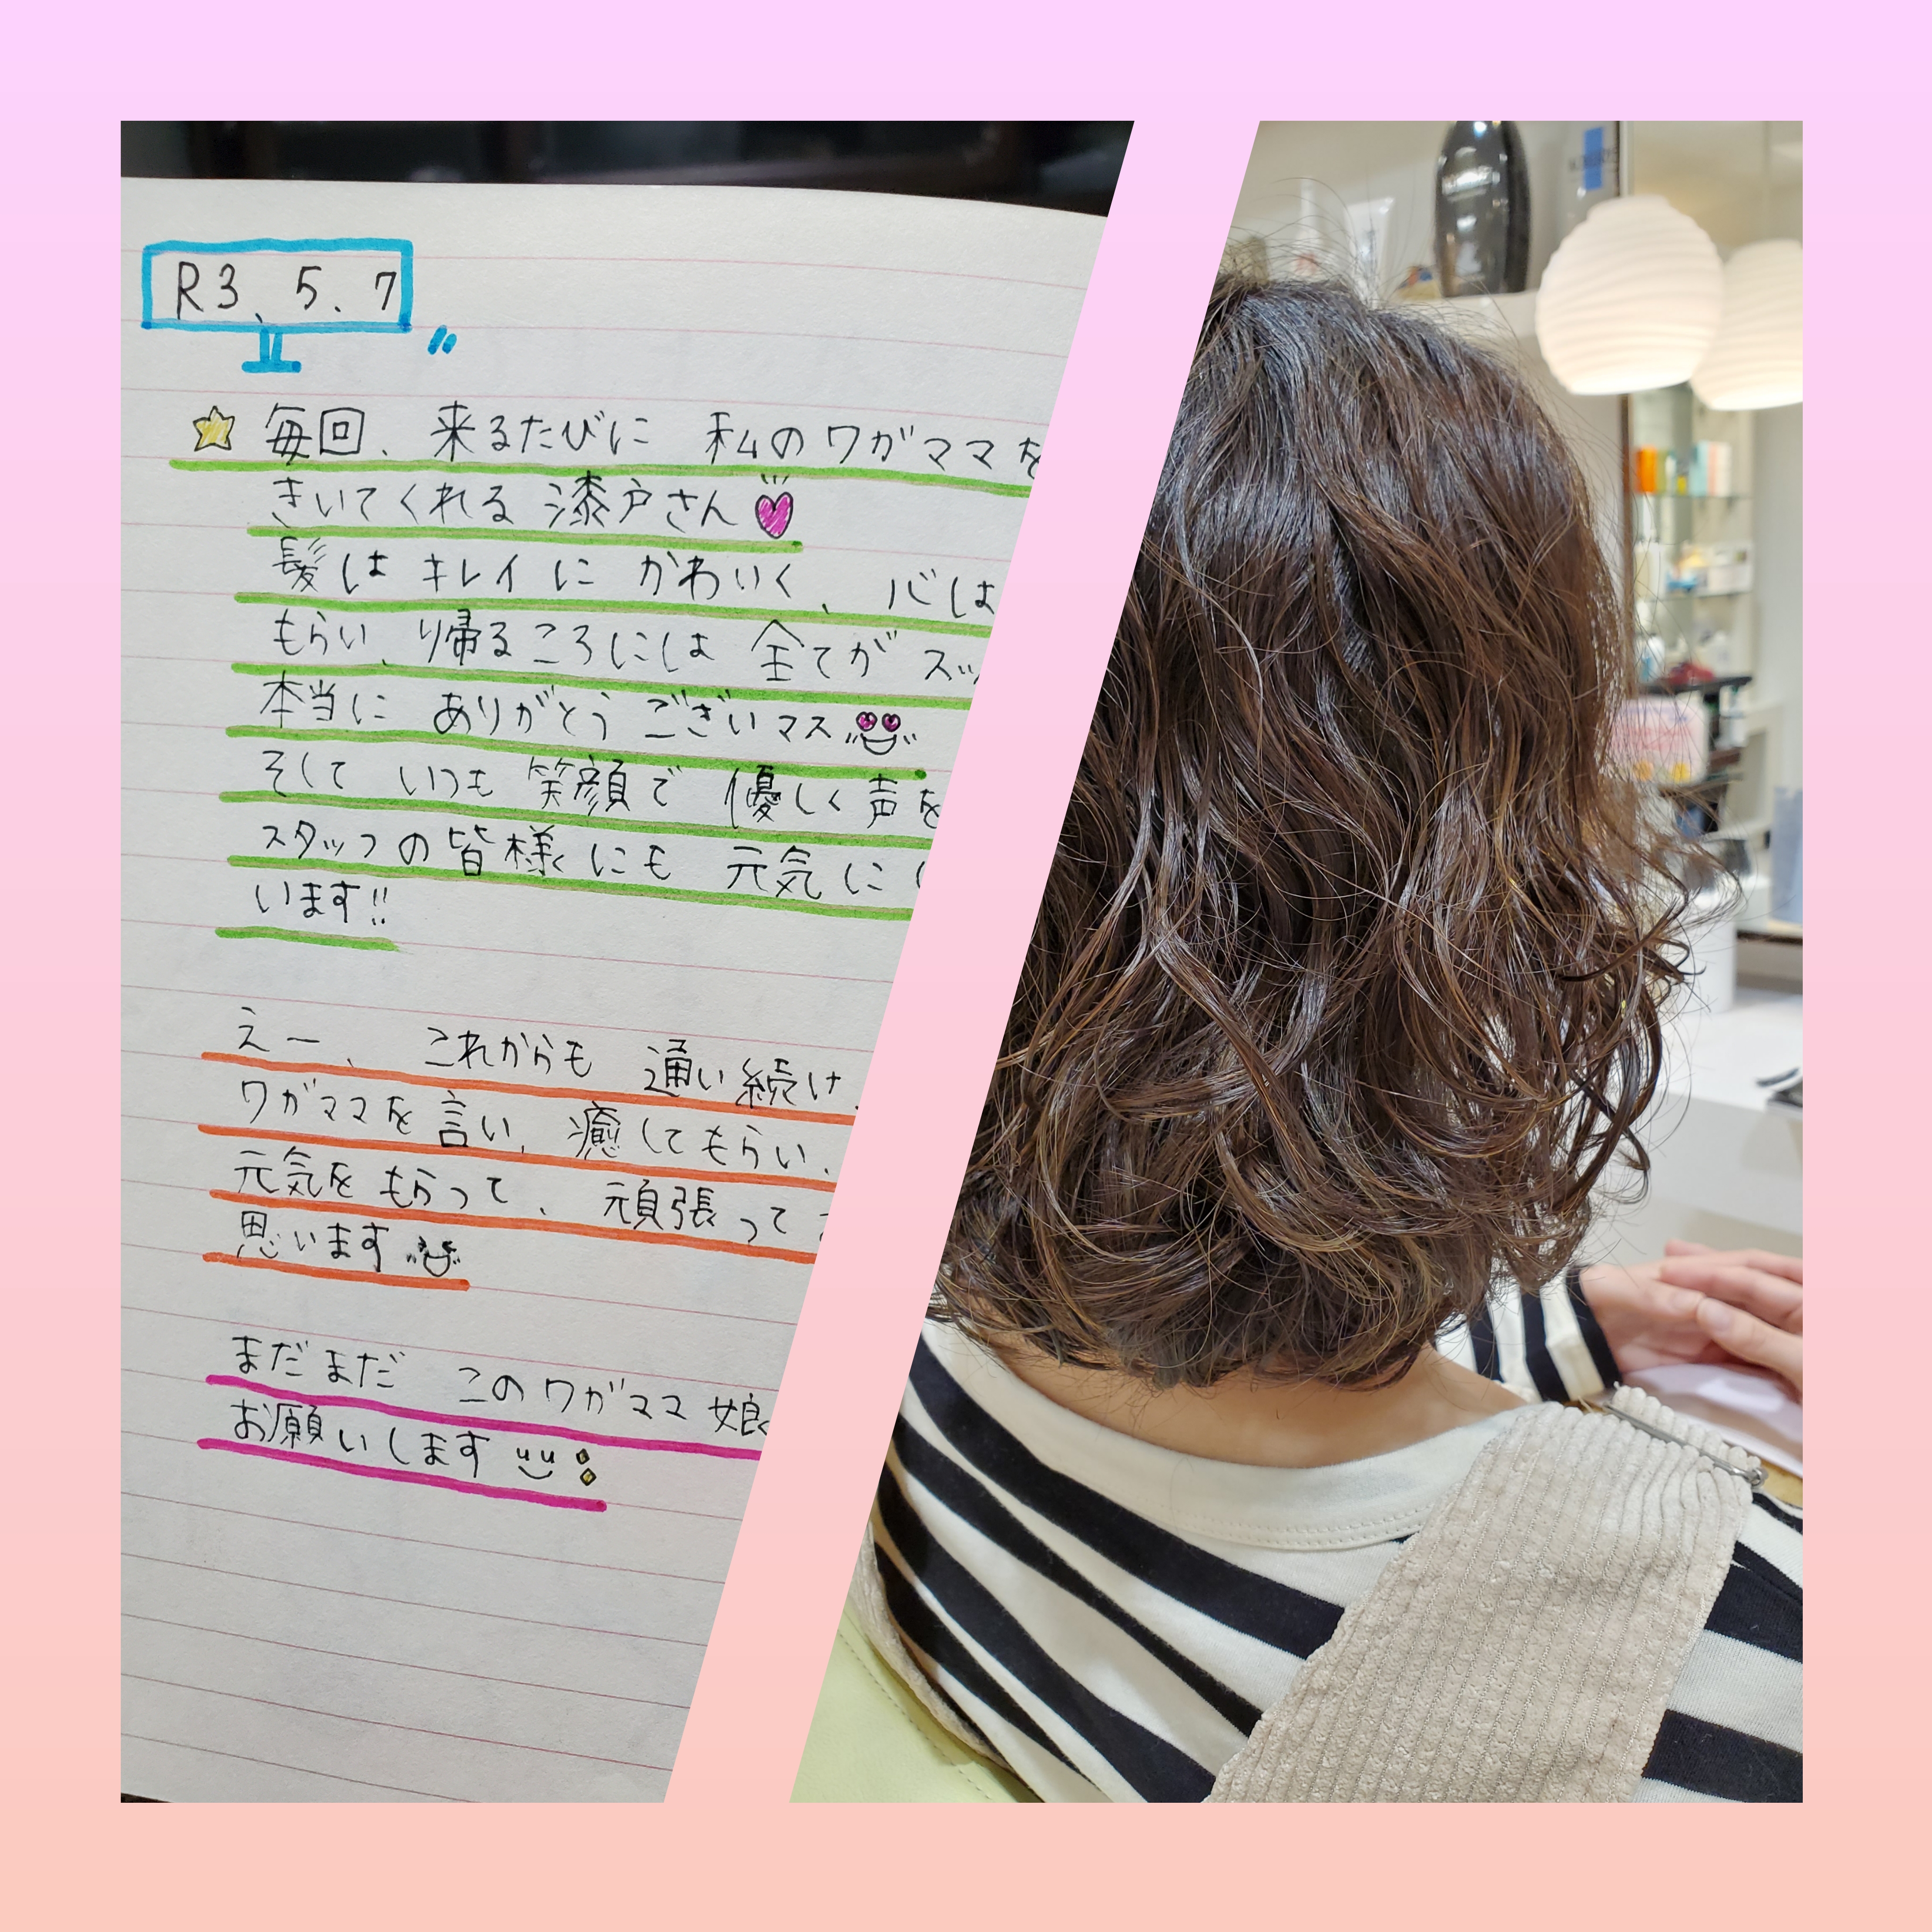 R3、5.7
毎回、来るたびに 私のワガママを
きいてくれる 漆戸さん
髪は キレイに かわいく、心は
もらい、帰るころには 全てが スッ
本当に ありがとう ございマス
そして いつも 笑顔で 優しく 声を
スタッフの 皆様にも 元気に
います!!
えー、 これからも 通い続け
ワガママを 言い、癒してもらい、
元気を もらって、 頑張って
思います
まだまだ このワガママ 娘
お願いします